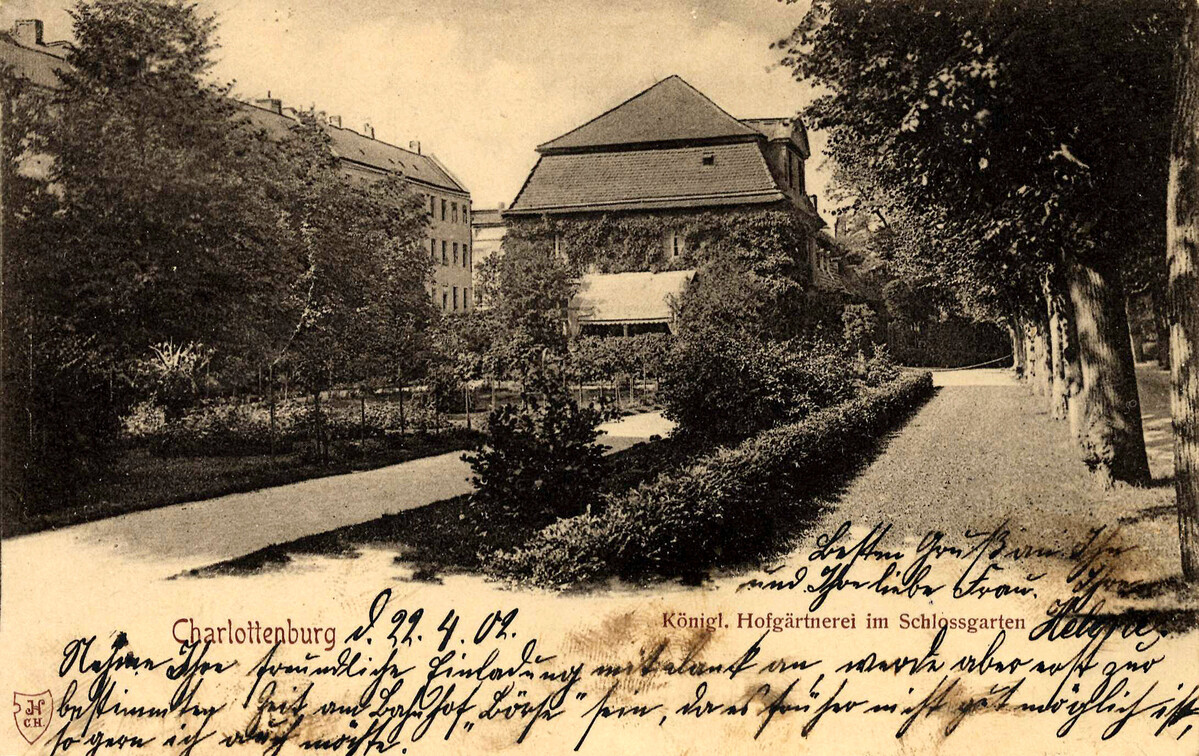 Besten Gruß an Ihn
und Ihre liebe Frau. Ihre
Helene.
Charlottenburg d. 22. 4. 02.
Königl. Hofgärtnerei im Schlossgarten
Nehme Ihre freundliche Einladung mit dank an, werde aber erst zur
bestimmten Zeit am Bahnhof „Börse“ sein, da es früher nicht gut möglich ist,
so gern ich auch möchte.
JH
C.H.